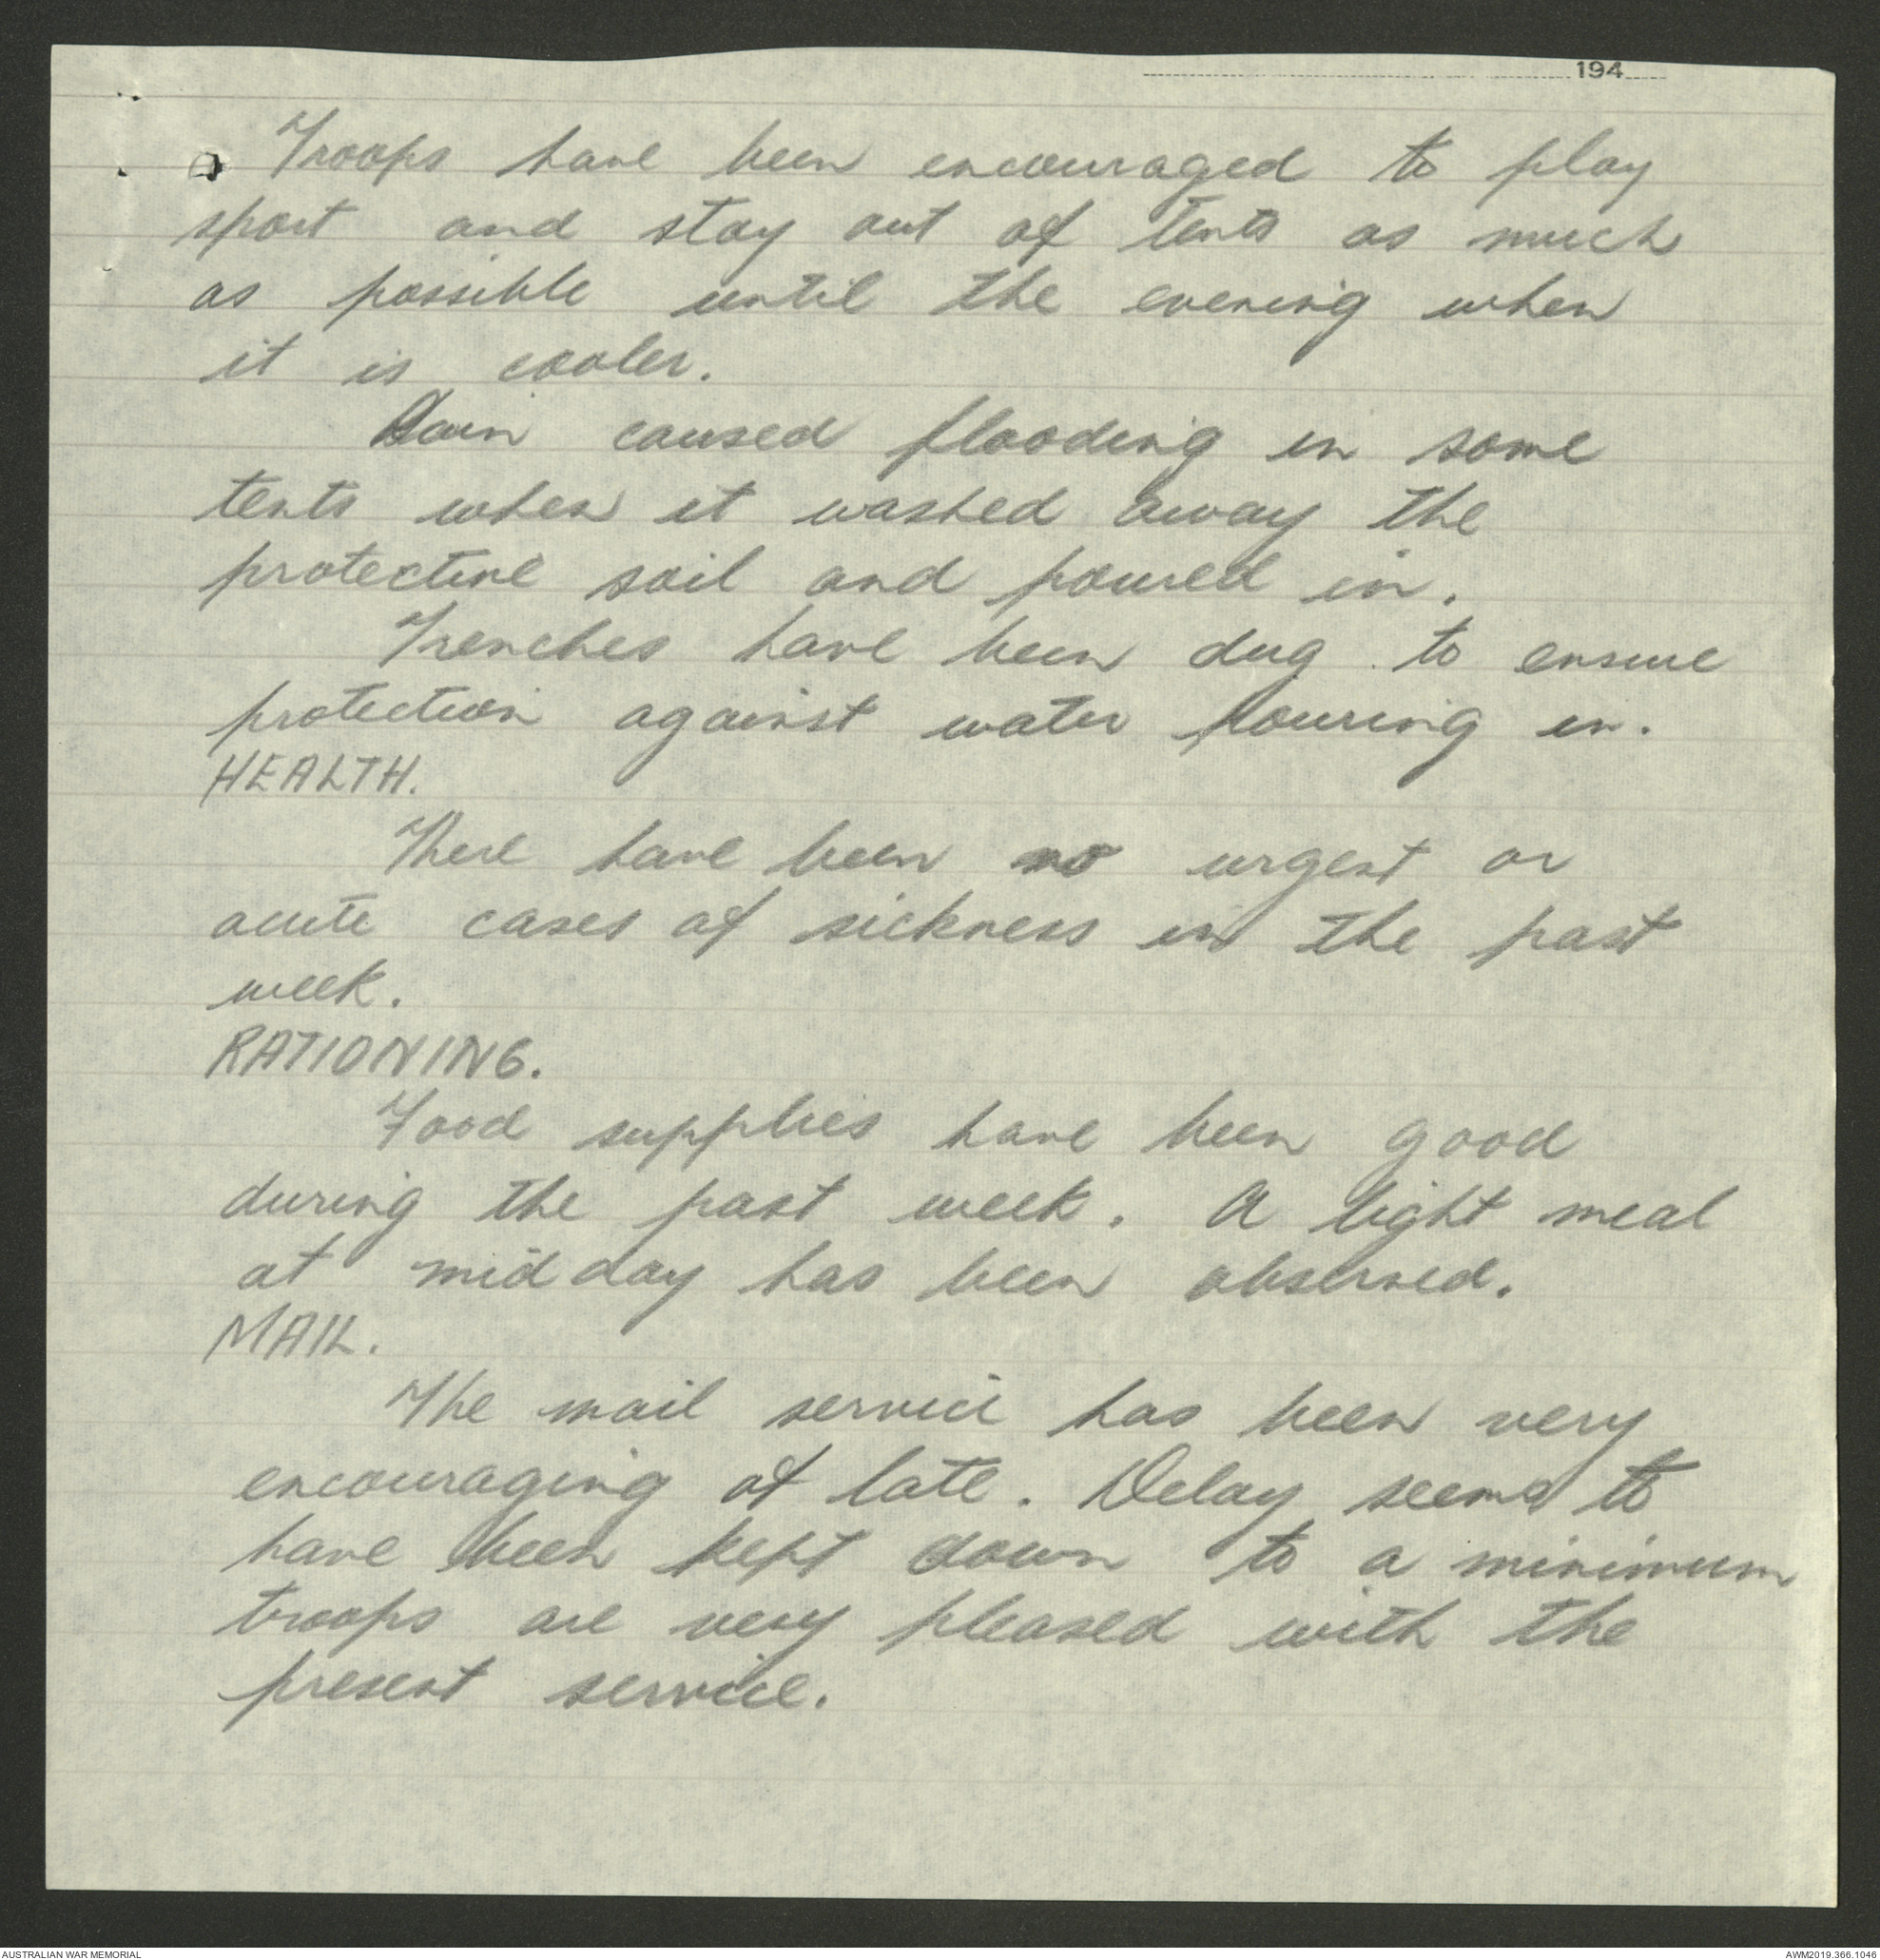 194
Troops have been encouraged to play
sport and stay out of tents as much
as possible until the evening when
it is cooler.
Rain caused flooding in some
tents when it washed away the
protective soil and poured in.
Trenches have been dug to ensure
protection against water pouring in.
HEALTH.
There have been no urgent or
acute cases of sickness in the past
week.
RATIONING.
Food supplies have been good
during the past week. A light meal
at midday has been observed.
MAIL.
The mail service has been very
encouraging of late. Delay seems to
have been kept down to a minimum
troops are very pleased with the
present service.
AUSTRALIAN WAR MEMORIAL
AWM2019.366.1046